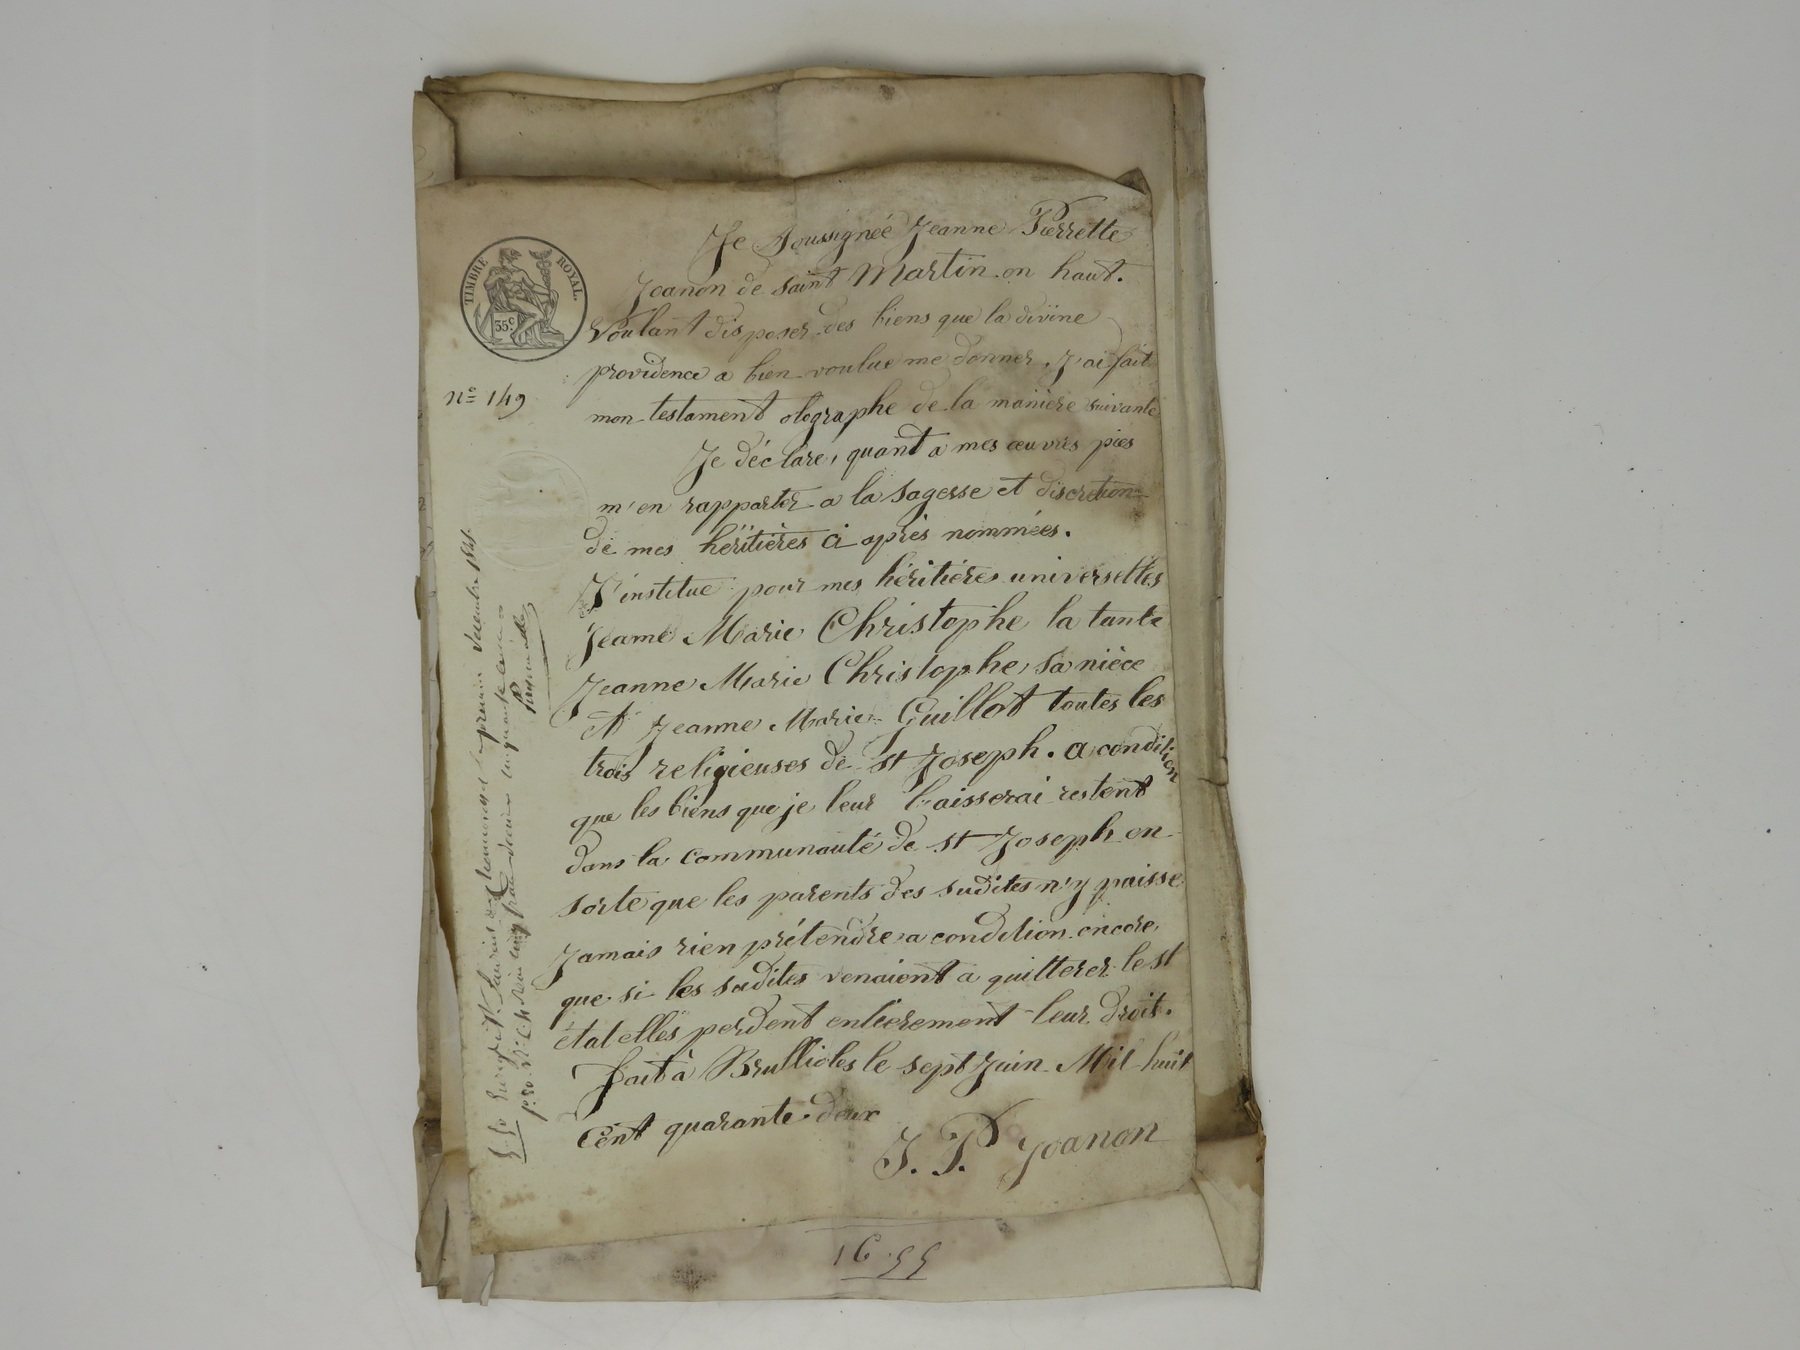 Je Soussignée Jeanne Pierrette
Joanon de saint Martin en haut.
Voulant disposer des biens que la divine
providence a bien voulue me donner, J'ai fait
mon testament olographe de la manière suivante
Je déclare, quant a mes œuvres pies
m'en rapporter a la sagesse et discretion
de mes héritières ci après nommées.
J'institue pour mes héritières universelles
Jeanne Marie Christophe la tante
Jeanne Marie Christophe, sa nièce
et Jeanne Marie Guillot toutes les
trois religieuses de st Joseph. a condition
que les biens que je leur laisserai restent
dans la communauté de st Joseph en
sorte que les parents des sudites n'y puisse
Jamais rien prétendre a condition encore,
que si les sudites venaient a quitterer le st
état elles perdent entierement leur droit.
fait à Brullioles le sept Juin Mil huit
Cent quarante deux
J. P. Joanon
TIMBRE ROYAL.
35c
no 149
16 55